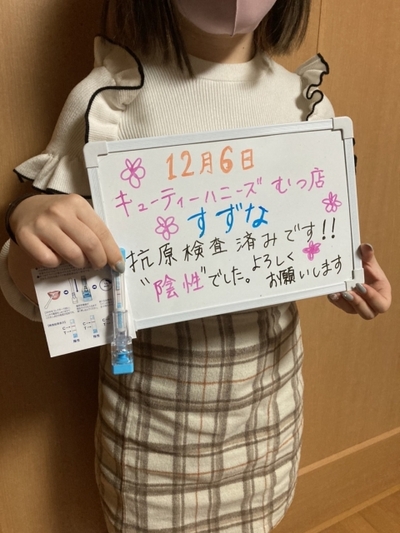 12月6日
キューティーハニーズ むつ店
すずな
抗原検査済みです!!
"陰性"でした。よろしくお願いします